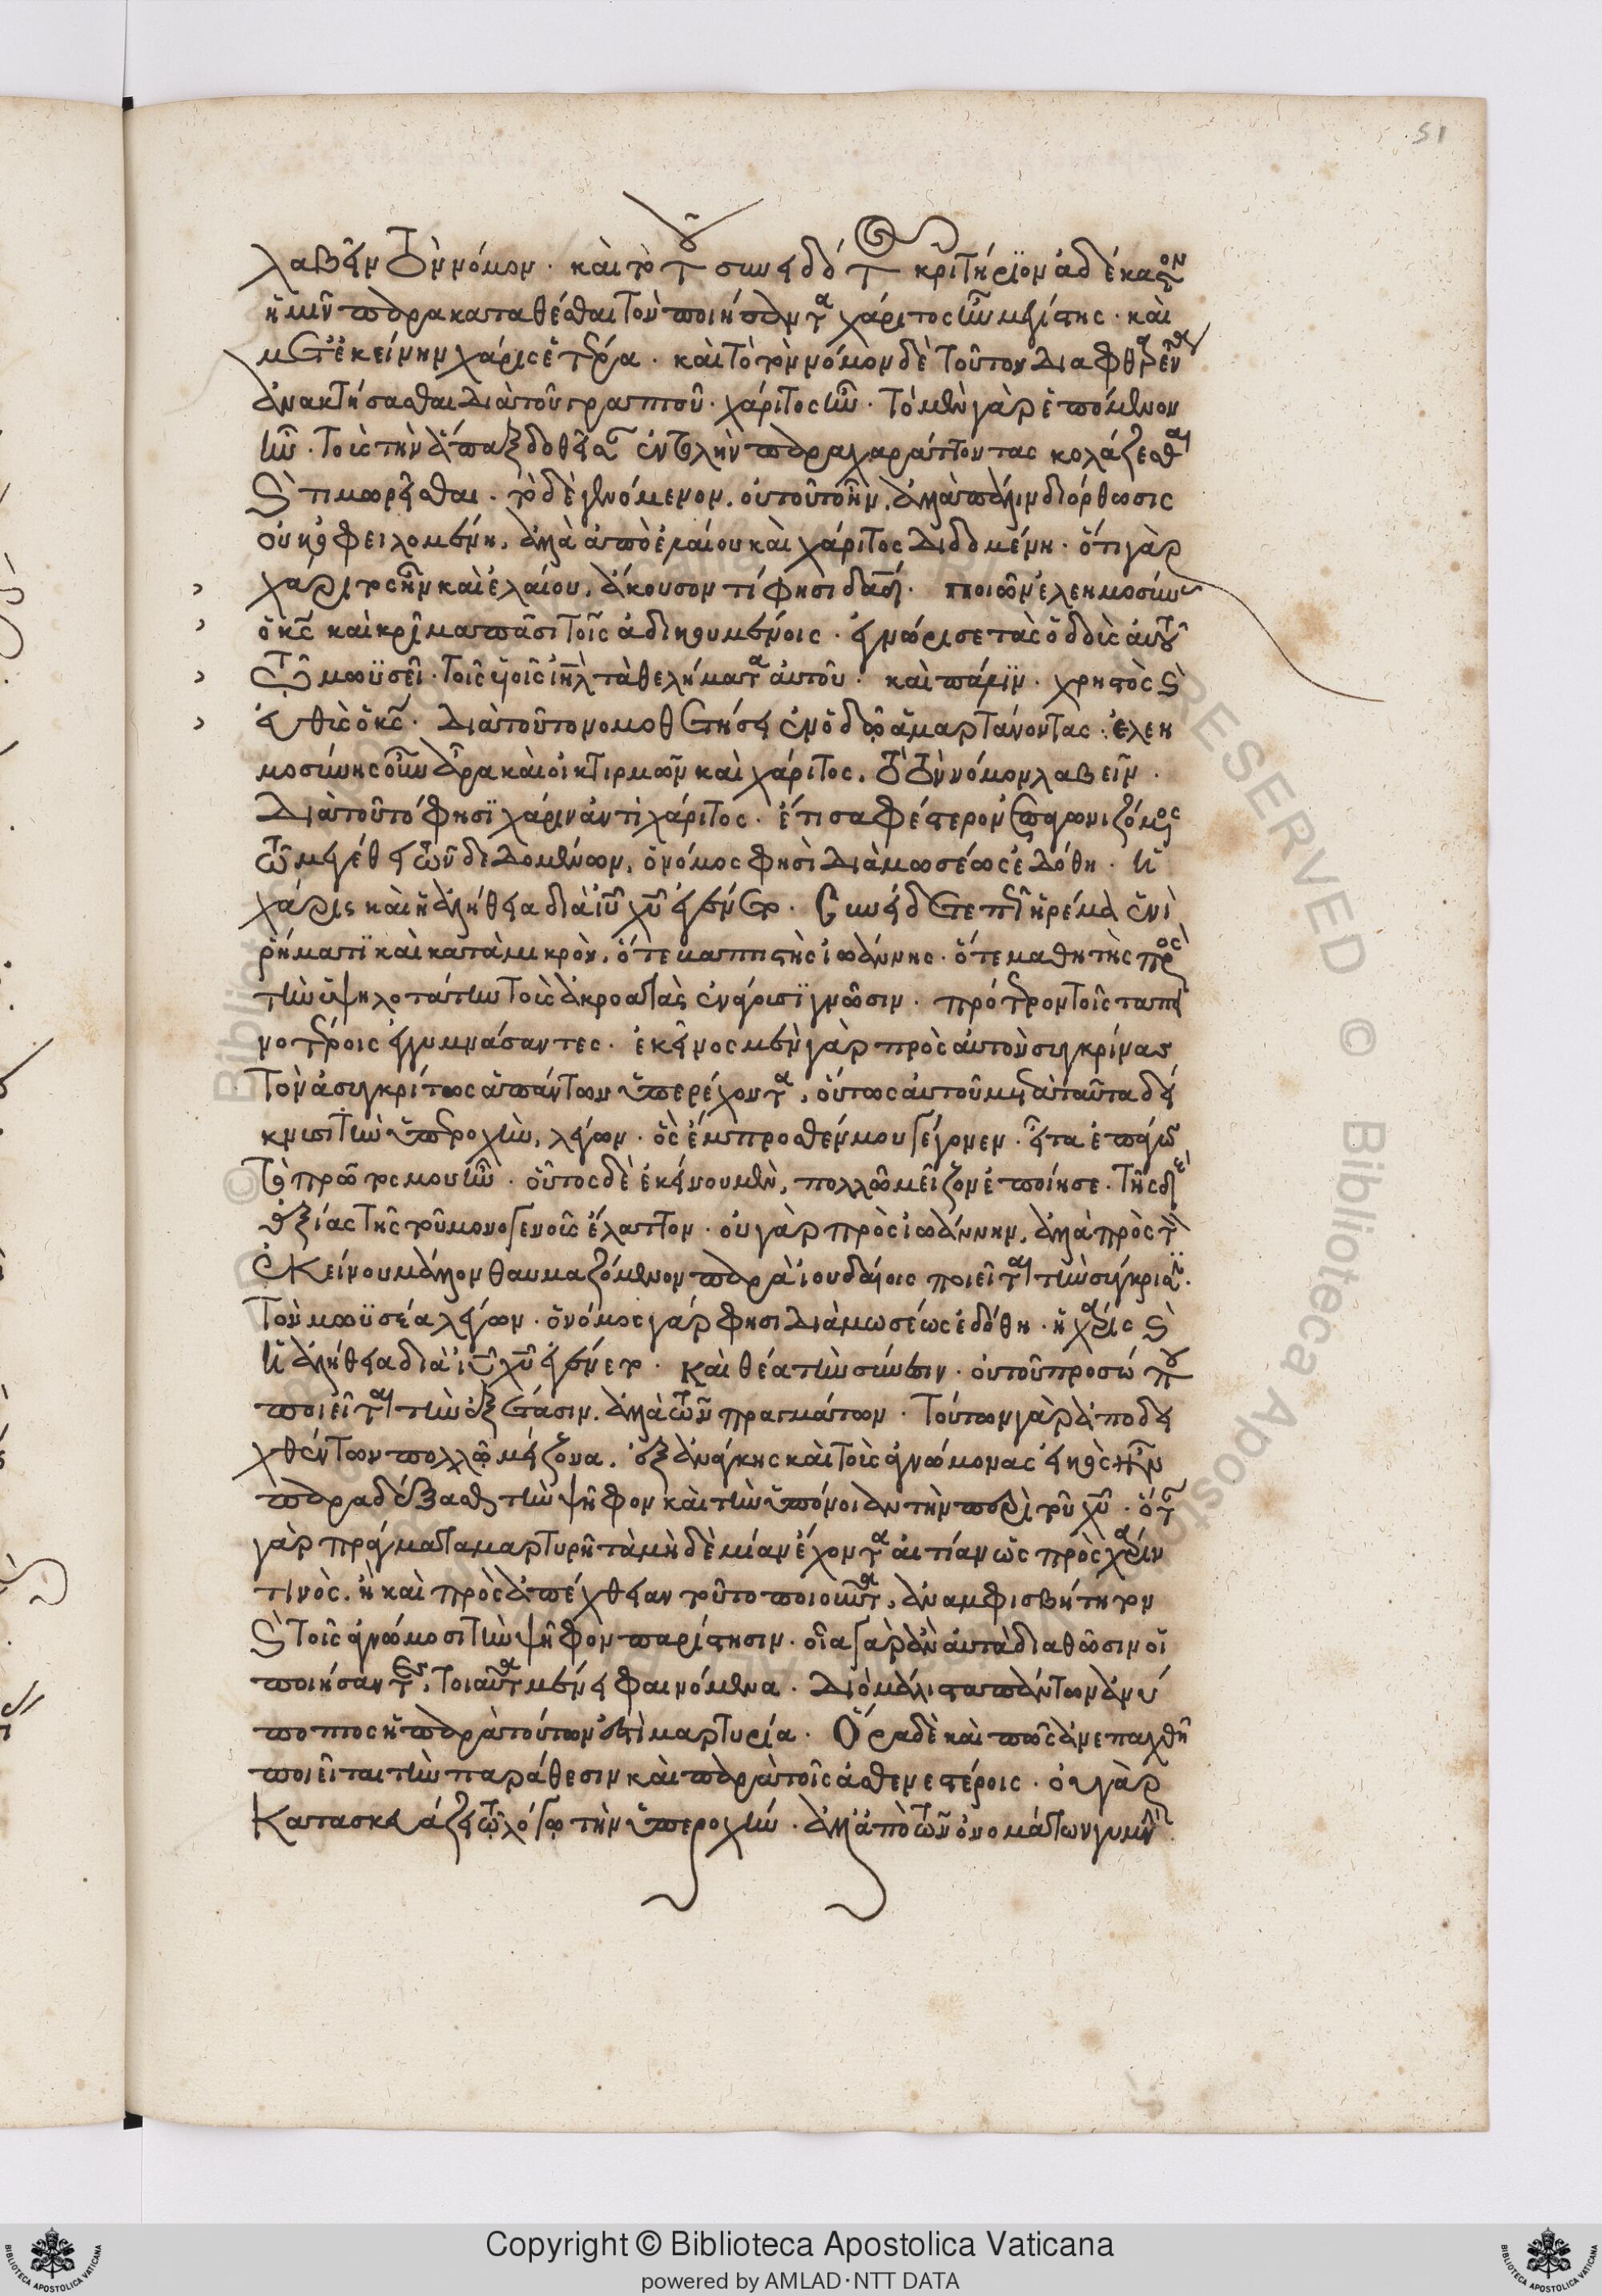 λαβεῖν τὸν νόμον · καὶ τὸ τοῦ συνειδότος κριτήριον ἀδέκαστον
ἡμῖν παρακαταθέσθαι τὸν ποιήσαντα χάριτος ἦν μεγίστης · καὶ
μετ' ἐκείνην χάρις ἑτέρα · καὶ τὸ τὸν νόμον δὲ τοῦτον διαφθαρέντα
ἀνακτήσασθαι διὰ τοῦ γραπτοῦ · χάριτος ἦν · τὸ μὲν γὰρ ἑπόμενον
ἦν · τοὺς τὴν ἅπαξ δοθεῖσαν ἐντολὴν παραχαράττοντας κολάζεσθαι
καὶ τιμωρεῖσθαι · τὸ δὲ γενόμενον, οὐ τοῦτο ἦν, ἀλλὰ πάλιν διόρθωσις
οὐκ ὀφειλομένη, ἀλλὰ ἀπὸ ἐλαίου καὶ χάριτος διδομένη · ὅτι γὰρ
χάριτος ἦν καὶ ἐλαίου, ἄκουσον τί φησι δαδ · ποιῶν ἐλεημοσύνην
ὁ κς καὶ κρῖμα πᾶσι τοῖς ἀδικουμένοις · ἐγνώρισε τὰς ὁδοὺς αὐτοῦ
τῷ μωϋσεῖ · τοῖς υἱοῖς ιηλ τὰ θελήματα αὐτοῦ · καὶ πάλιν · χρηστὸς καὶ
εὐθὺς ὁ κς · διὰ τοῦτο νομοθετήσει ἐν ὁδῷ ἁμαρτάνοντας · ἐλεη
μοσύνης οὖν ἄρα καὶ οἰκτιρμῶν καὶ χάριτος, τὸ τὸν νόμον λαβεῖν ·
διὰ τοῦτό φησϊ χάριν ἀντὶ χάριτος · ἔτι σαφέστερον ἐπαγωνιζόμενος
τῷ μεγέθει τῶν δεδομένων, ὁ νόμος φησὶ διὰ μωσέως ἐδόθη · ἡ
χάρις καὶ ἡ ἀλήθεια διὰ ιυ χυ ἐγένετο · συνείδετε πῶς ἠρέμα ἑνὶ
ῥήματϊ καὶ κατὰ μικρὸν, ὅ τε βαπτιστὴς ἰωάννης · ὅ τε μαθητὴς πρὸς
τὴν ὑψηλοτάτην τοὺς ἀκροατὰς ἐνάγουσϊ γνῶσιν · πρότερον τοῖς ταπει
νοτέροις ἐγγυμνάσαντες · ἐκεῖνος μὲν γὰρ πρὸς αὐτὸν συγκρίνας
τὸν ἀσυγκρίτως ἁπάντων ὑπερέχοντα, οὕτως αὐτοῦ μετὰ ταῦτα δεί
κνυσι τὴν ὑπεροχὴν, λέγων · ὃς ἔμπροσθέν μου γέγονεν · εἶτα ἐπάγων
τὸ πρῶτός μου ἦν · οὗτος δὲ ἐκείνου μὲν, πολλῷ μεῖζον ἐποίησε · τῆς δὲ
ἀξίας τῆς τοῦ μονογενοῦς ἔλαττον · οὐ γὰρ πρὸς ἰωάννην, ἀλλὰ πρὸς τὸν
ἐκείνου μᾶλλον θαυμαζόμενον παρὰ ἰουδαίοις ποιεῖται τὴν σύγκρισιν ·
τὸν μωϋσέα λέγων · ὁ νόμος γάρ φησι διὰ μωσέως ἐδόθη · ἡ χάρις καὶ
ἡ ἀλήθεια διὰ ιυ χυ ἐγένετο · καὶ θέα τὴν σύνεσιν · οὐ τοῦ προσώπου
ποιεῖται τὴν ἐξέτασιν, ἀλλὰ τῶν πραγμάτων · τούτων γὰρ ἀποδει
χθέντων πολλῷ μείζονα, ἐξ ἀνάγκης καὶ τοὺς ἀγνώμονας εἰκὸς ἦν
παραδέξασθαι τὴν ψῆφον καὶ τὴν ὑπόνοιαν τὴν περὶ τοῦ χυ · ὅταν
γὰρ πράγματα μαρτυρῇ τὰ μηδεμίαν ἔχοντα αἰτίαν ὡς πρὸς χάριν
τινὸς, ἢ καὶ πρὸς ἀπέχθειαν τοῦτο ποιοῦντα, ἀναμφισβήτητον
καὶ τοῖς ἀγνώμοσι τὴν ψῆφον παρίστησιν · οἷα γὰρ ἂν αὐτὰ διαθῶσιν οἱ
ποιήσαντες, τοιαῦτα μένει φαινόμενα · διὸ μάλιστα πάντων ἀνύ
ποπτος ἡ παρὰ τούτων ἐστὶ μαρτυρία · ὅρα δὲ καὶ πῶς ἀνεπαχθῆ
ποιεῖται τὴν παράθεσιν καὶ παρὰ τοῖς ἀσθενεστέροις · οὐ γὰρ
κατασκευάζει τῷ λόγῳ τὴν ὑπεροχήν · ἀλλ' ἀπὸ τῶν ὀνομάτων γυμνὴν